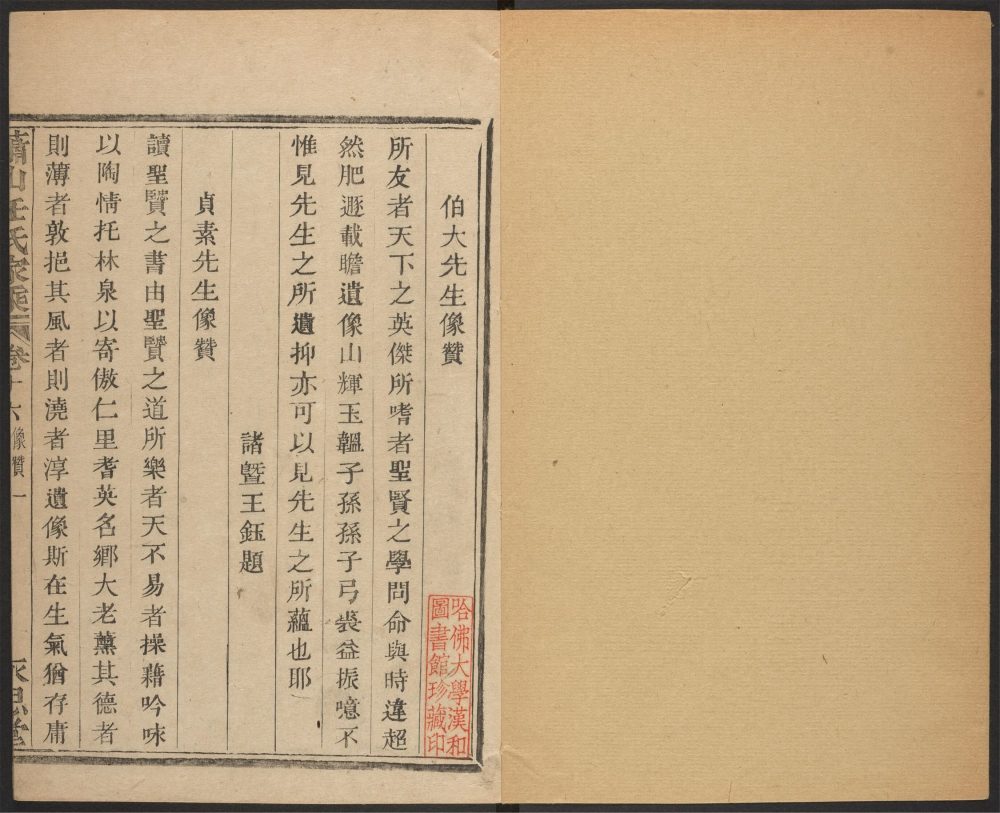 伯大先生像贊
所友者天下之英傑所嗜者聖賢之學問命與時違超
然肥遯載瞻遺像山輝玉韞子孫孫子弓裘益振噫不
惟見先生之所遺抑亦可以見先生之所蘊也耶
諸暨王鈺題
貞素先生像贊
讀聖賢之書由聖賢之道所樂者天不易者操藉吟咏
以陶情托林泉以寄傲仁里耆英名鄉大老薰其德者
則薄者敦挹其風者則澆者淳遺像斯在生氣猶存庸
蕭山任氏家乘 卷十六 像贊 一
永思堂
哈佛大學漢和
圖書館珍藏印